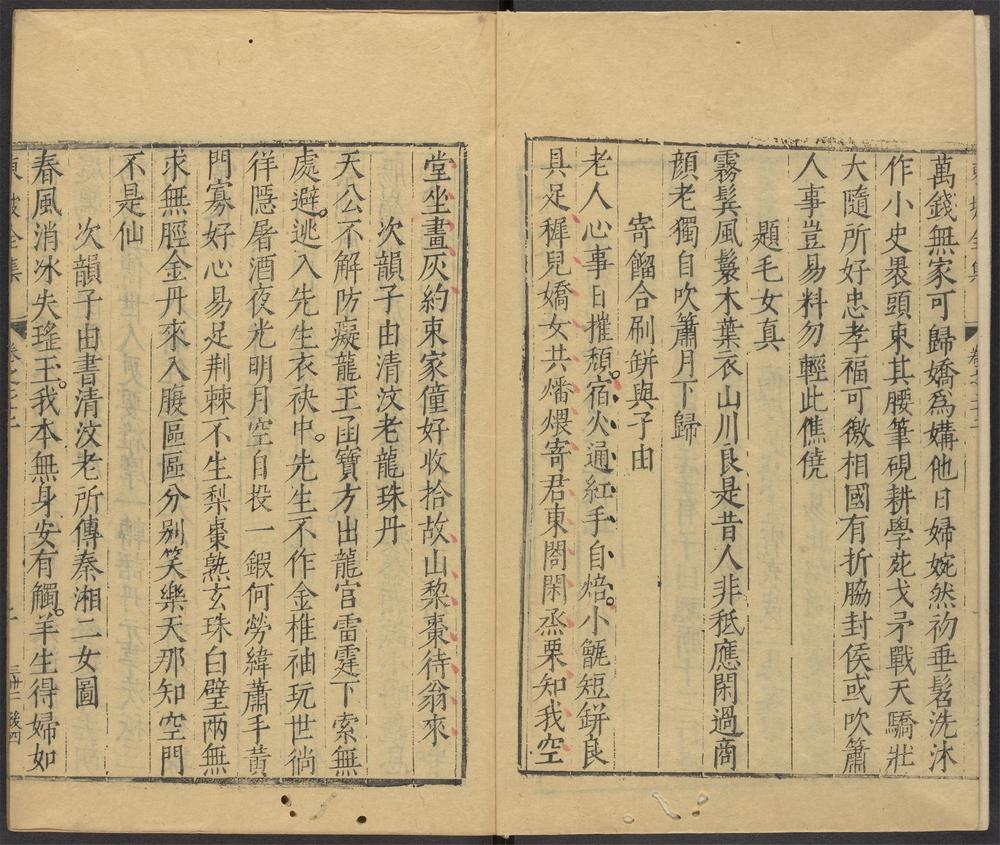 萬錢無家可歸嬌為媾他日婦婉然礿垂髫洗沐
作小史褁頭束其腰筆硯耕學苑戈矛戰天驕壯
大隨所好忠孝福可徼相國有折脇封侯或吹簫
人事豈易料勿輕此僬僥
題毛女真
霧鬂風鬟木葉衣山川良是昔人非秪應閑過商
顏老獨自吹簫月下歸
寄餾合刷缾與子由
老人心事日摧頹宿火通紅手自焙小甑短缾良
具足穉兒嬌女共燔煨寄君東閤閑烝栗知我空
堂坐畫灰約束家僮好收拾故山黎棗待翁來
次韻子由清汶老龍珠丹
天公不解防癡龍玉函寶方出龍宮雷霆下索無
處避逃入先生衣袂中先生不作金椎袖玩世徜
徉隱屠酒夜光明月空自投一鍜何勞緯蕭手黃
門寡好心易足荆棘不生梨棗熟玄珠白璧兩無
求無脛金丹來入腹區區分别笑樂天那知空門
不是仙
次韻子由書清汶老所傳秦湘二女圖
春風消冰失瑤玉我本無身安有觸羊生得婦如
東坡全集